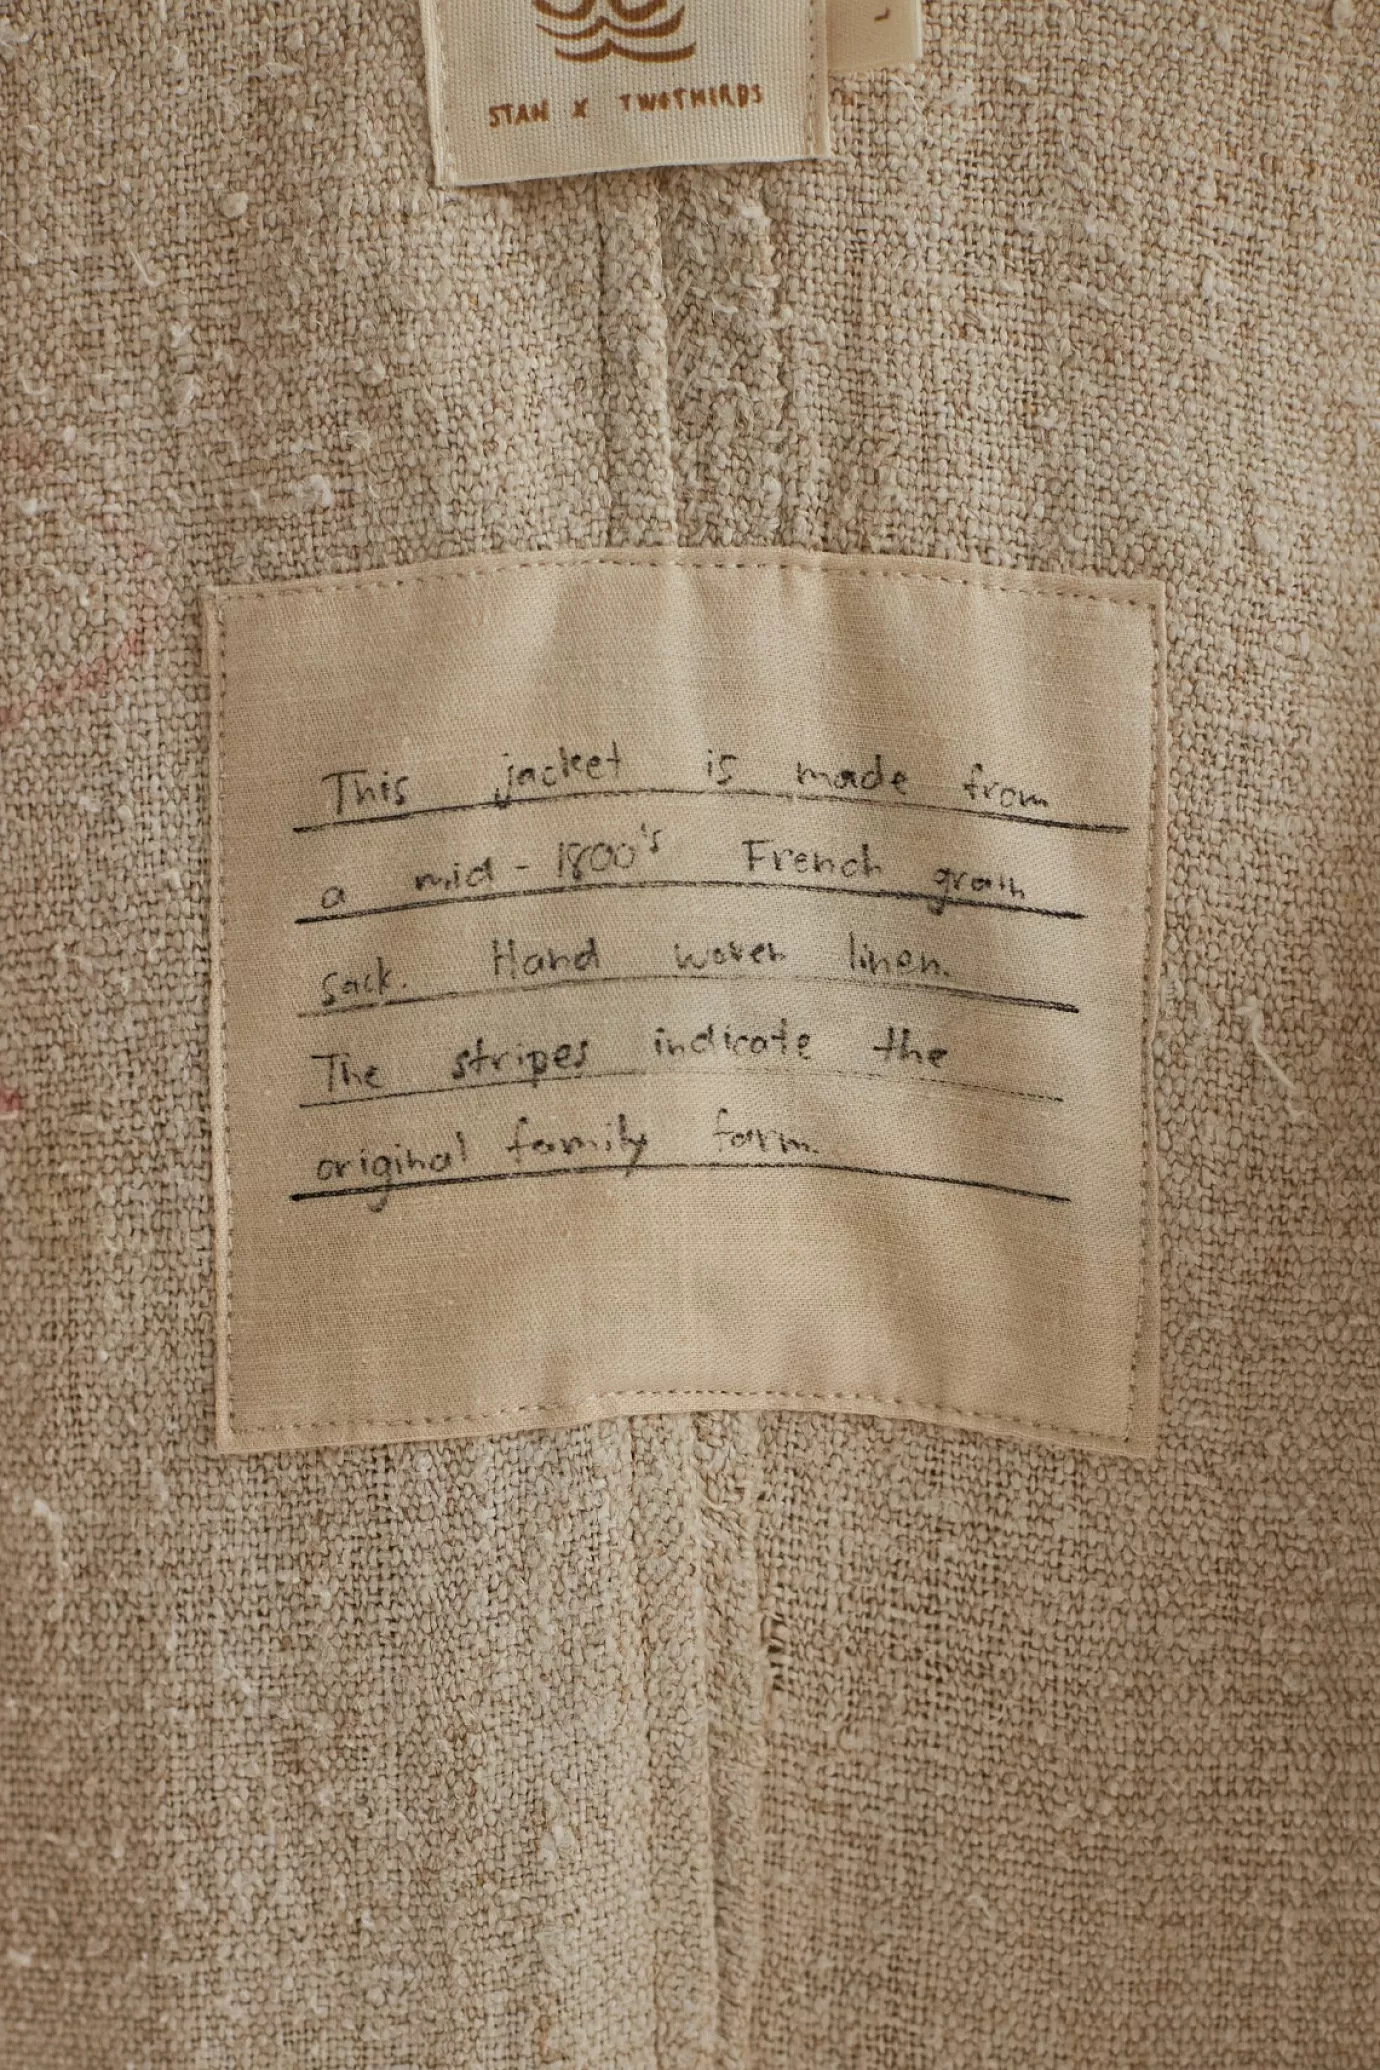 STAN X TWOTHIRDS
L
This jacket is made from
a mid-1800's French grain
sack. Hand woven linen.
The stripes indicate the
original family farm.